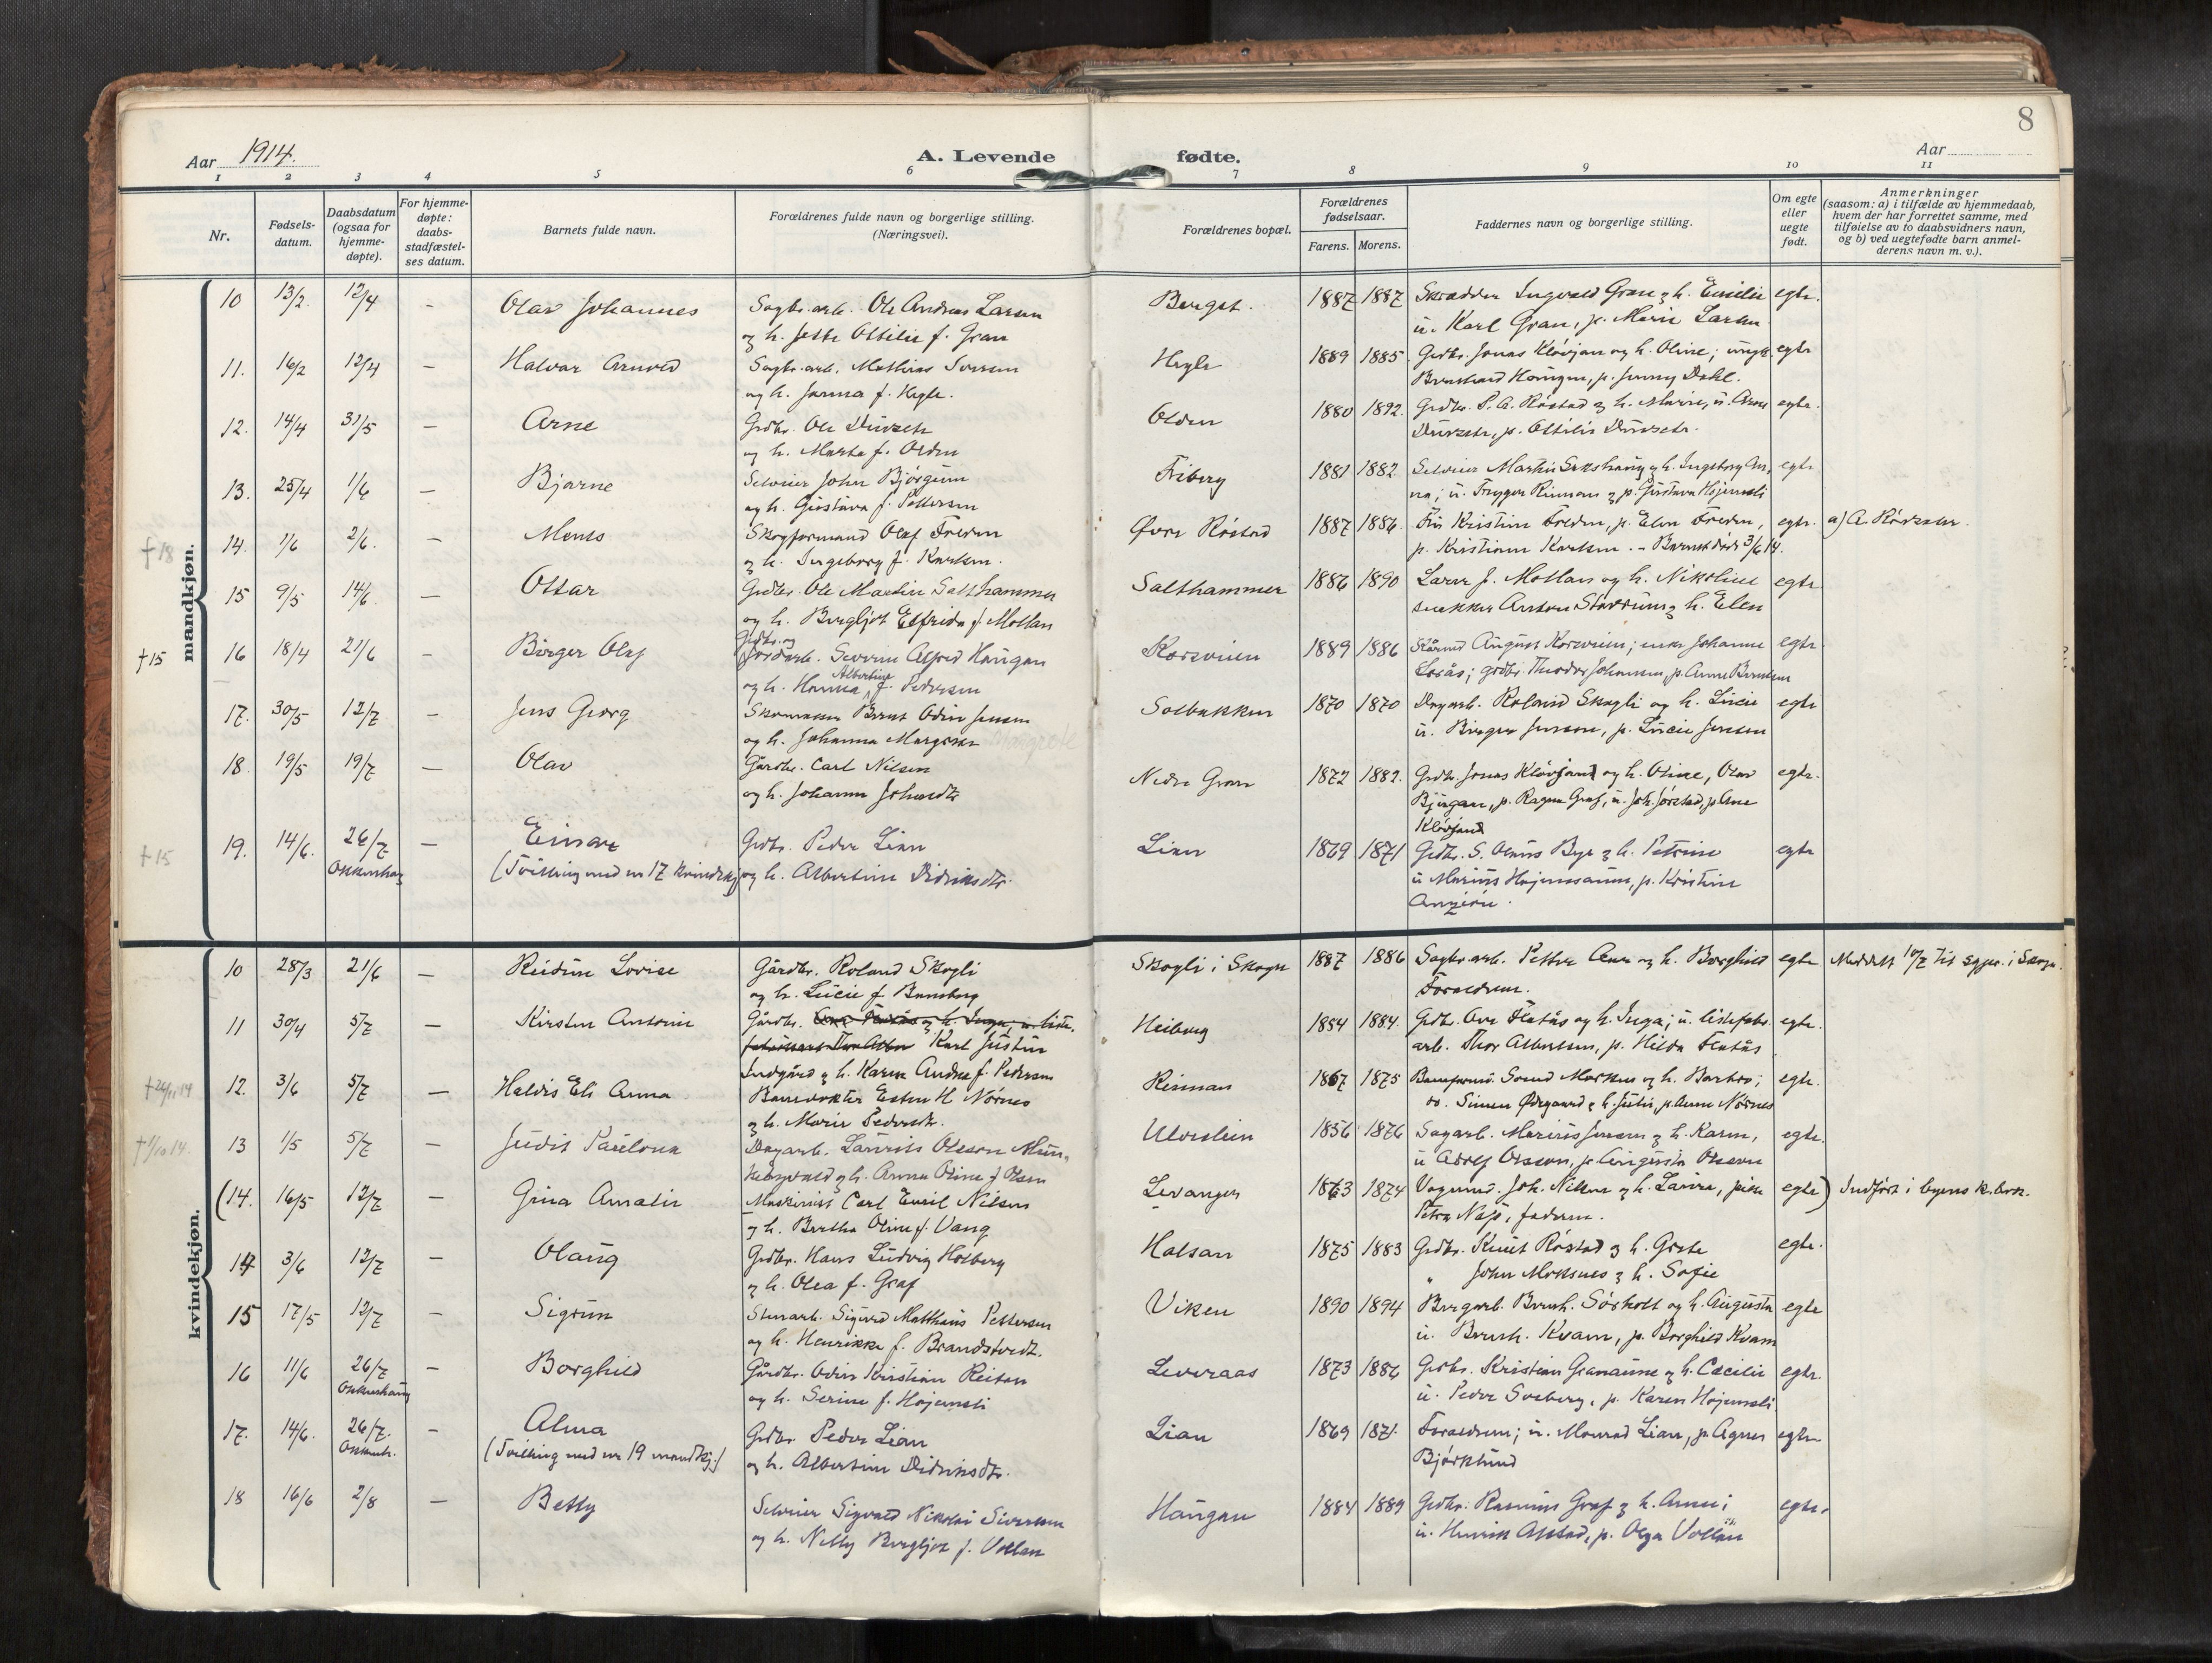 8
Aar 1914.
A. Levende fødte.
Aar
1 2 3 4 5 6 7 8 9 10 11
Nr.
Fødsels-
datum.
Daabsdatum
(ogsaa for
hjemme-
døpte).
For hjemme-
døpte:
daabs-
stadfæstel-
ses datum.
Barnets fulde navn.
Forældrenes fulde navn og borgerlige stilling.
(Næringsvei).
Forældrenes bopæl.
Forældrenes
fødselsaar.
Farens. Morens.
Faddernes navn og borgerlige stilling.
Om egte
eller
uegte
født.
Anmerkninger
(saasom: a) i tilfælde av hjemmedaab,
hvem der har forrettet samme, med
tilføielse av to daabsvidners navn,
og b) ved uegtefødte barn anmel-
derens navn m. v.).
mandkjøn.
10 13/2. 12/4 – Olav Johannes Sagbr. arb. Ole Andreas Larsen Bergst. 1887 1887 Skrædder Ingvald Gran & h. Emilie egte.
og h. Jette Ottilie f. Gran u. Karl Gran, p. Marie Larsen
11. 16/2 12/4 – Halvar Arnold Sagbr. arb. Mathias Iversen Hegle 1889 1885. Grdbr. Jonas Kløvjan og h. Oline; ungk. egte
og h. Jarma f. Hegle. Bernhard Haugen, p. Jenny Dahl.
12. 14/4 31/5 – Arne Grdbr. Ole Olden 1880 1892. Grdbr. P. A. Røstad & h. Marie, u. Arne egte.
og h. Marta f. Olden p. Ottilie
13. 25/4 1/6 – Bjarne Seleier John Bjørgum Friberg 1881 1882 Seleier Martin & h. Ingeborg An- egte
og h. Gustava f. Pettersen na; u. Trygve Rinnan & p. Gustava Højemsli
†18
14. 1/6 2/6. – Ments Skogformand Olaf Freden Øvre Røstad 1887 1886. Fru Kristine Freden, p. Elen Freden, egte. a) A. Rødseter.
& h. Ingeborg f. Karlsen. p. Kristiane Karlsen. – Barnet død 3/6 14.
15 9/5 14/6. – Ottar Grdbr. Ole Martin Salthammer Salthammer 1886 1890 Lærer J. Mollan og h. Nikoline egte
og h. Bergljot Elfrida f. Mollan snekker Anton Stavrum & h. Elen
†15
16 18/4 21/6 – Birger Olaf Grdbr. og
Jordarb. Severin Alfred Haugan Korsveien 1889 1886 August Korsveien; enke Johanne egte
og h. Hanna Albertine f. Pedersen Løsås; grdbr. Theodor Johansen, p. Anna Berntsen
17. 30/5 12/7 – Jens Georg Skomaker Bernt Odin Jensen Solbakken 1870 1870 Dagarb. Roland Skogli og h. Lucie egte
og h. Johanna Margrete Margrete u. Birger Jensen, p. Lucie Jensen
18. 19/5 19/7 – Olav Gårdbr. Carl Nilsen Nedre Gran 1872 1882. Grdbr. Jonas Kløvjan og h. Oline, Olav egte.
og h. Johanna Bjørgan, p. Ragna Graf, u. Joh. Jørstad, p. Ane
Kløvjan
†15
19. 14/6. 26/7 – Einar Grdbr. Peder Lian Lian 1869 1871 Grdbr. S. Olaus Bye & h. Petrine egte
Okkenhaug (Tvilling med nr 17 kvindekj.) og h. Albertine Didriksdtr. u Marius Højemsaunn, p. Kristine
kvindekjøn.
10 28/3 21/6 – Reidun Lovise Gårdbr. Roland Skogli Skogli i Skogn 1887 1886 Sagbr. arb. Petter Aune og h. Borghild egte Meddelt 10/7 til sgpr. i Skogn.
og h. Lucie f. Bamberg Forældrene.
11 30/4 5/7 – Kirsten Antonie Gårdbr. Karl Justin Heiberg 1884 1884. Grdbr. Ove Flatås og h. Inga; u. listefabr. egte.
Indgård & h. Karen Andrea f. Pedersen arb. Thor Albertsen, p. Hilda Flatås
†26/11 14
12. 3/6 5/7 – Haldis Eli Anna Banevokter Esten H Nørnes Rinnan 1867 1875 Baneformd. Svend Moksnes og h. Barbro; egte.
& h. Marie Pedersdtr. Simen Ødegaard & h. Julie, p. Anna Nørnes
†1/10 14.
13 1/5 5/7 – Judit Paulona Dagarb. Laurits Olsson Mun- Ulvedalen 1856 1876 Sagarb. Marius Jensen & h. Karen, egte.
kebyvald & h. Anna Oline f Olsen u Adolf Olsson, p. Augusta Olsson
(14. 16/5 12/7 – Gina Amalie Maskinist Carl Emil Nilsen Levanger 1863 1874 Vognmd. Joh. Nilsen & h. Laura, pike egte) Indført i byens k.bok.
& h. Bertha Oline f. Vang Petra Næss, faderen.
14 3/6 12/7 – Olaug Grdbr. Hans Ludvig Holberg Halsan 1875 1883 Grdbr. Knut Røstad & h. Grete egte.
& h. Olea f. Graf " John Moksnes & h. Sofie
15 17/5 12/7 – Sigrun Stenarb. Sigurd Matthæus Pettersen Viken 1890 1894 Bergarb. Bernh. Sørholt og h. Augusta egte
og h. Henrikke f. Brandstvedt. u. Bernh. Kvam, p. Borghild Kvam
16 11/6 26/7 – Borghild Gårdbr. Odin Kristian Reitan Leveraas 1873 1886 Grdbr. Kristian Granaune & h. Cæcilie egte.
Okkenhaug og h. Serine f. Højemsli u. Peder Soeberg, p. Karen Højemsli
17. 14/6. 26/7. – Alma Grdbr. Peder Lian Lian 1869 1871. Forældrene; u. Monrad Lian, p. Agnes egte
Okkenh. (Tvilling med nr 19 mandkj.) og h. Albertine Didriksdtr. Bjørklund
18 16/6 2/8 – Betty Seleier Sigvald Nikolai Sivertsen Haugan 1884 1889 Grdbr. Rasmus Graf & h. Anna; egte.
og h. Nelly Bergljot f. Vollan u. Henrik Alstad, p. Olga Vollan